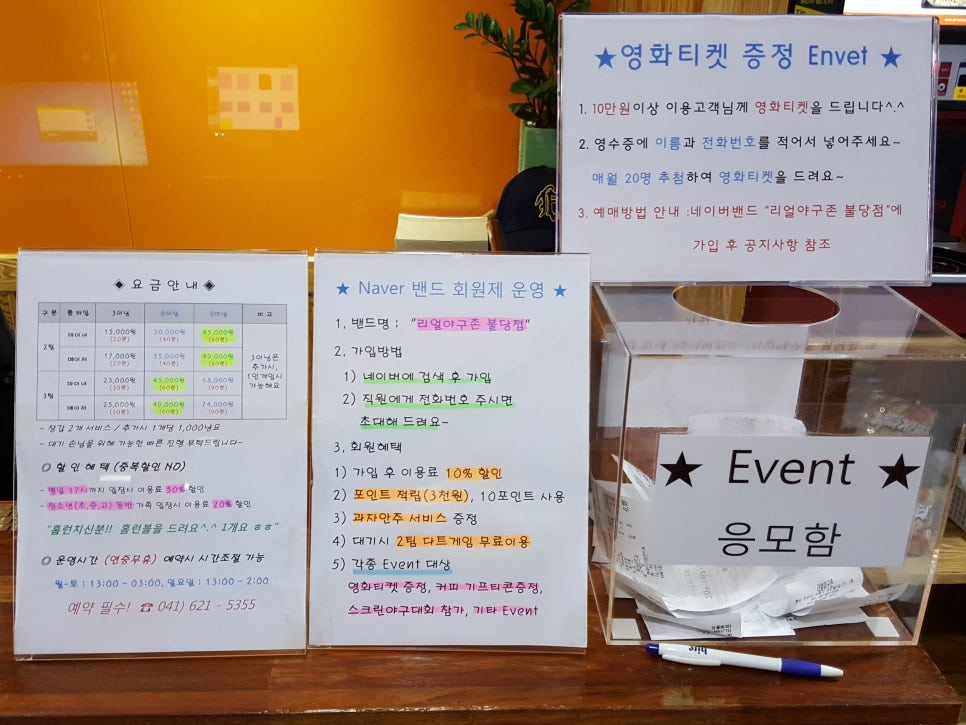 ★영화티켓 증정 Envet ★
1. 10만원이상 이용고객님께 영화티켓을 드립니다^.^
2. 영수증에 이름과 전화번호를 적어서 넣어주세요~
매월 20명 추첨하여 영화티켓을 드려요~
3. 예매방법 안내 :네이버밴드 "리얼야구존 불당점"에
가입 후 공지사항 참조
◈ 요금안내 ◈
구분 룸타입 3이닝 6이닝 9이닝 비고
2팀 마이너 15,000원 (20분) 30,000원 (40분) 45,000원 (60분)
메이저 17,000원 (20분) 35,000원 (40분) 49,000원 (60분)
3팀 마이너 23,000원 (30분) 45,000원 (60분) 68,000원 (90분)
메이저 25,000원 (30분) 49,000원 (60분) 74,000원 (90분)
3이닝은
추가시,
1인게임시
가능해요
- 장갑 2개 서비스 / 추가시 1개당 1,000냥요
- 대기 손님을 위해 가능한 빠른 진행 부탁드립니다~
◎ 할인혜택 (중복할인 NO)
- 평일 17시까지 입장시 이용료 30% 할인
- 청소년(초,중,고) 동반 가족 입장시 이용료 20% 할인
"홈런치신분!! 홈런볼을 드려요^.^ 1개요 ㅎㅎ"
◎ 운영시간 (연중무휴) 예약시 시간조절 가능
월-토 : 13:00 - 03:00, 일요일 : 13:00 - 2:00
예약 필수! ☎ 041) 621 - 5355
★ Naver 밴드 회원제 운영 ★
1. 밴드명 : "리얼야구존 불당점"
2. 가입방법
1) 네이버에 검색 후 가입
2) 직원에게 전화번호 주시면
초대해 드려요~
3. 회원혜택
1) 가입 후 이용료 10% 할인
2) 포인트 적립(3천원), 10포인트 사용
3) 과자안주 서비스 증정
4) 대기시 2팀 다트게임 무료이용
5) 각종 Event 대상
영화티켓 증정, 커피 기프티콘증정,
스크린야구대회 참가, 기타 Event
★ Event ★
응모함